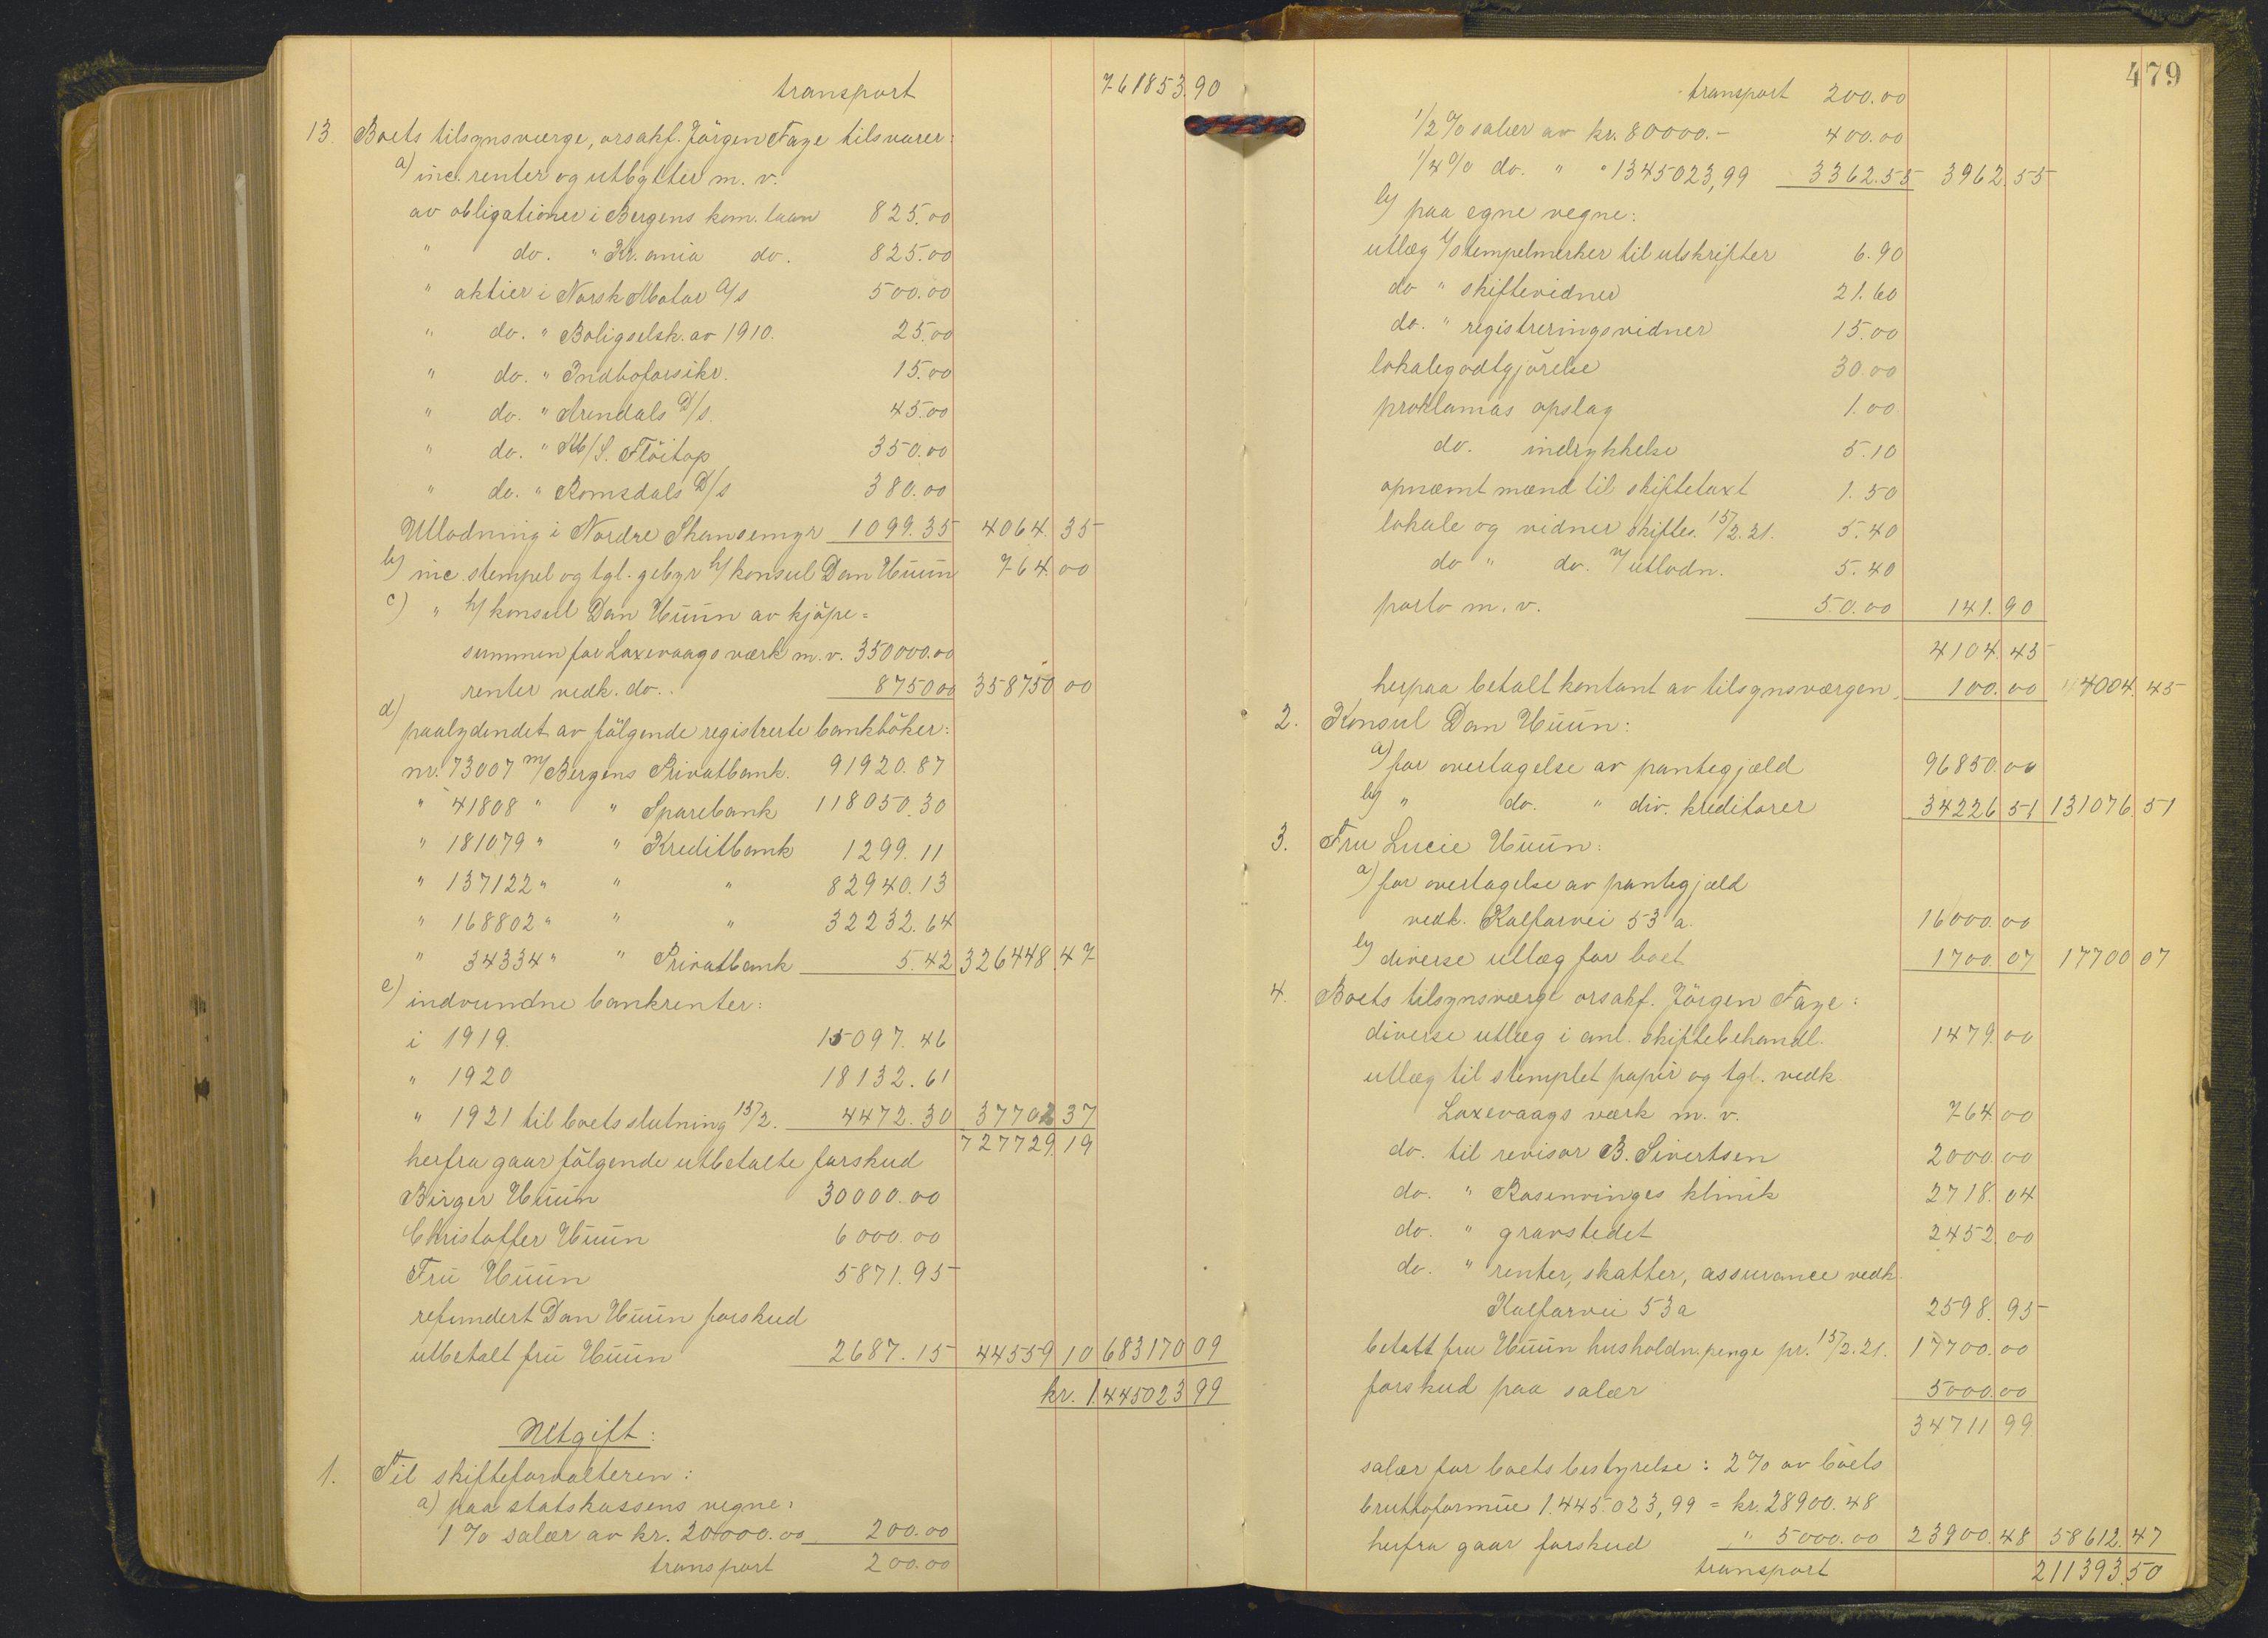 transport 761853.90
13. Boets tilsynsværge, orsakf. Jörgen Faye tilsvarer:
a) inc. renter og utbytter m. v.
av obligationer i Bergens kom. laan 825.00
" do. " Kr.ania do. 825.00
" aktier i Norsk Motor A/s 500.00
" do. " Boligselsk. av 1910. 25.00
" do. " Indboforsikr. 15.00
" do. " Arendals D/s. 45.00
" do. " M/S. Flöitop 350.00
" do. " Romsdals D/s 380.00
Utlodning i Nordre Skansemyr 1099.35 4064.35
b) inc. stempel og tgl. gebyr h/ konsul Dan Huun 764.00
c) " h/ konsul Dan Huun av kjöpe=
summen for Laxevaags værk m. v. 350000.00
renter vedk. do.. 8750.00 358750.00
d) paalydendet av fölgende registrerte bankböker:
nr. 73007 m/ Bergens Privatbank. 91920.87
" 41808 " " Sparebank 118050.30
" 181079 " " Kreditbank 1299.11
" 137122 " " " 82940.13
" 168802 " " " 32232.64
" 34334 " " Privatbank 5.42 326448.47
e) indvundne bankrenter:
i 1919. 15097.46
" 1920 18132.61
" 1921 til boets slutning 15/2. 4472.30 37702 37
727729.19
herfra gaar fölgende utbetalte forskud
Birger Huun 30000.00
Christoffer Huun 6000.00
Fru Huun 5871.95
refundert Dan Huun forskud
utbetalt fru Huun 2687.15 44559 10 683170 09
kr. 1.445023 99
Utgift:
1. Til skifteforvalteren:
a) paa statskassens vegne:
1% salær av kr. 20000.00 200.00
transport 200.00
479
transport 200.00
1/2 % salær av kr. 80000.- 400.00
1/4 % do. " " 1345023,99 3362.55 3962.55
b) paa egne vegne:
utlæg t/ stempelmerker til utskrifter 6.90
do " skiftevidner 21.60
do. " registreringsvidner 15.00
lokalegodtgjörelse 30.00
proklamas opslag 1.00
do. indrykkelse 5.10
opnæmt mænd til skiftetaxt 1.50
lokale og vidner skiftes. 15/2.21. 5.40
do " do. v/ utlodn. 5.40
porto m. v. 50.00 141.90
4104.45
herpaa betalt kontant av tilsynsværgen 100.00 4004.45
2. Konsul Dan Huun:
a) for overtagelse av pantegjæld 96850.00
b) " do. " div. kreditorer 34226 51 131076.51
3. Fru Lucie Huun:
a) for overtagelse av pantegjæld
vedk. Kalfarvei 53 a. 16000.00
b) diverse utlæg for boet 1700.07 17700 07
4. Boets tilsynsværge orsakf. Jörgen Faye:
diverse utlæg i anl. skiftebehandl. 1479.00
utlæg til stemplet papir og tgl. vedk.
Laxevaags værk m. v. 764.00
do. til revisor B. Sivertsen 2000.00
do. " Rosenvinges klinik 2718.04
do. " gravstedet 2452.00
do. " renter, skatter, assurance vedk.
Kalfarvei 53a 2598.95
betalt fru Huun husholdn.penge pr. 15/2.21. 17700.00
forskud paa salær 5000.00
34711 99.
salær for boets bestyrelse: 2% av boets
bruttoformue 1.445.023,99 = kr. 28900.48
herfra gaar forskud " 5000.00 23900.48 58612.47
transport 211393.50